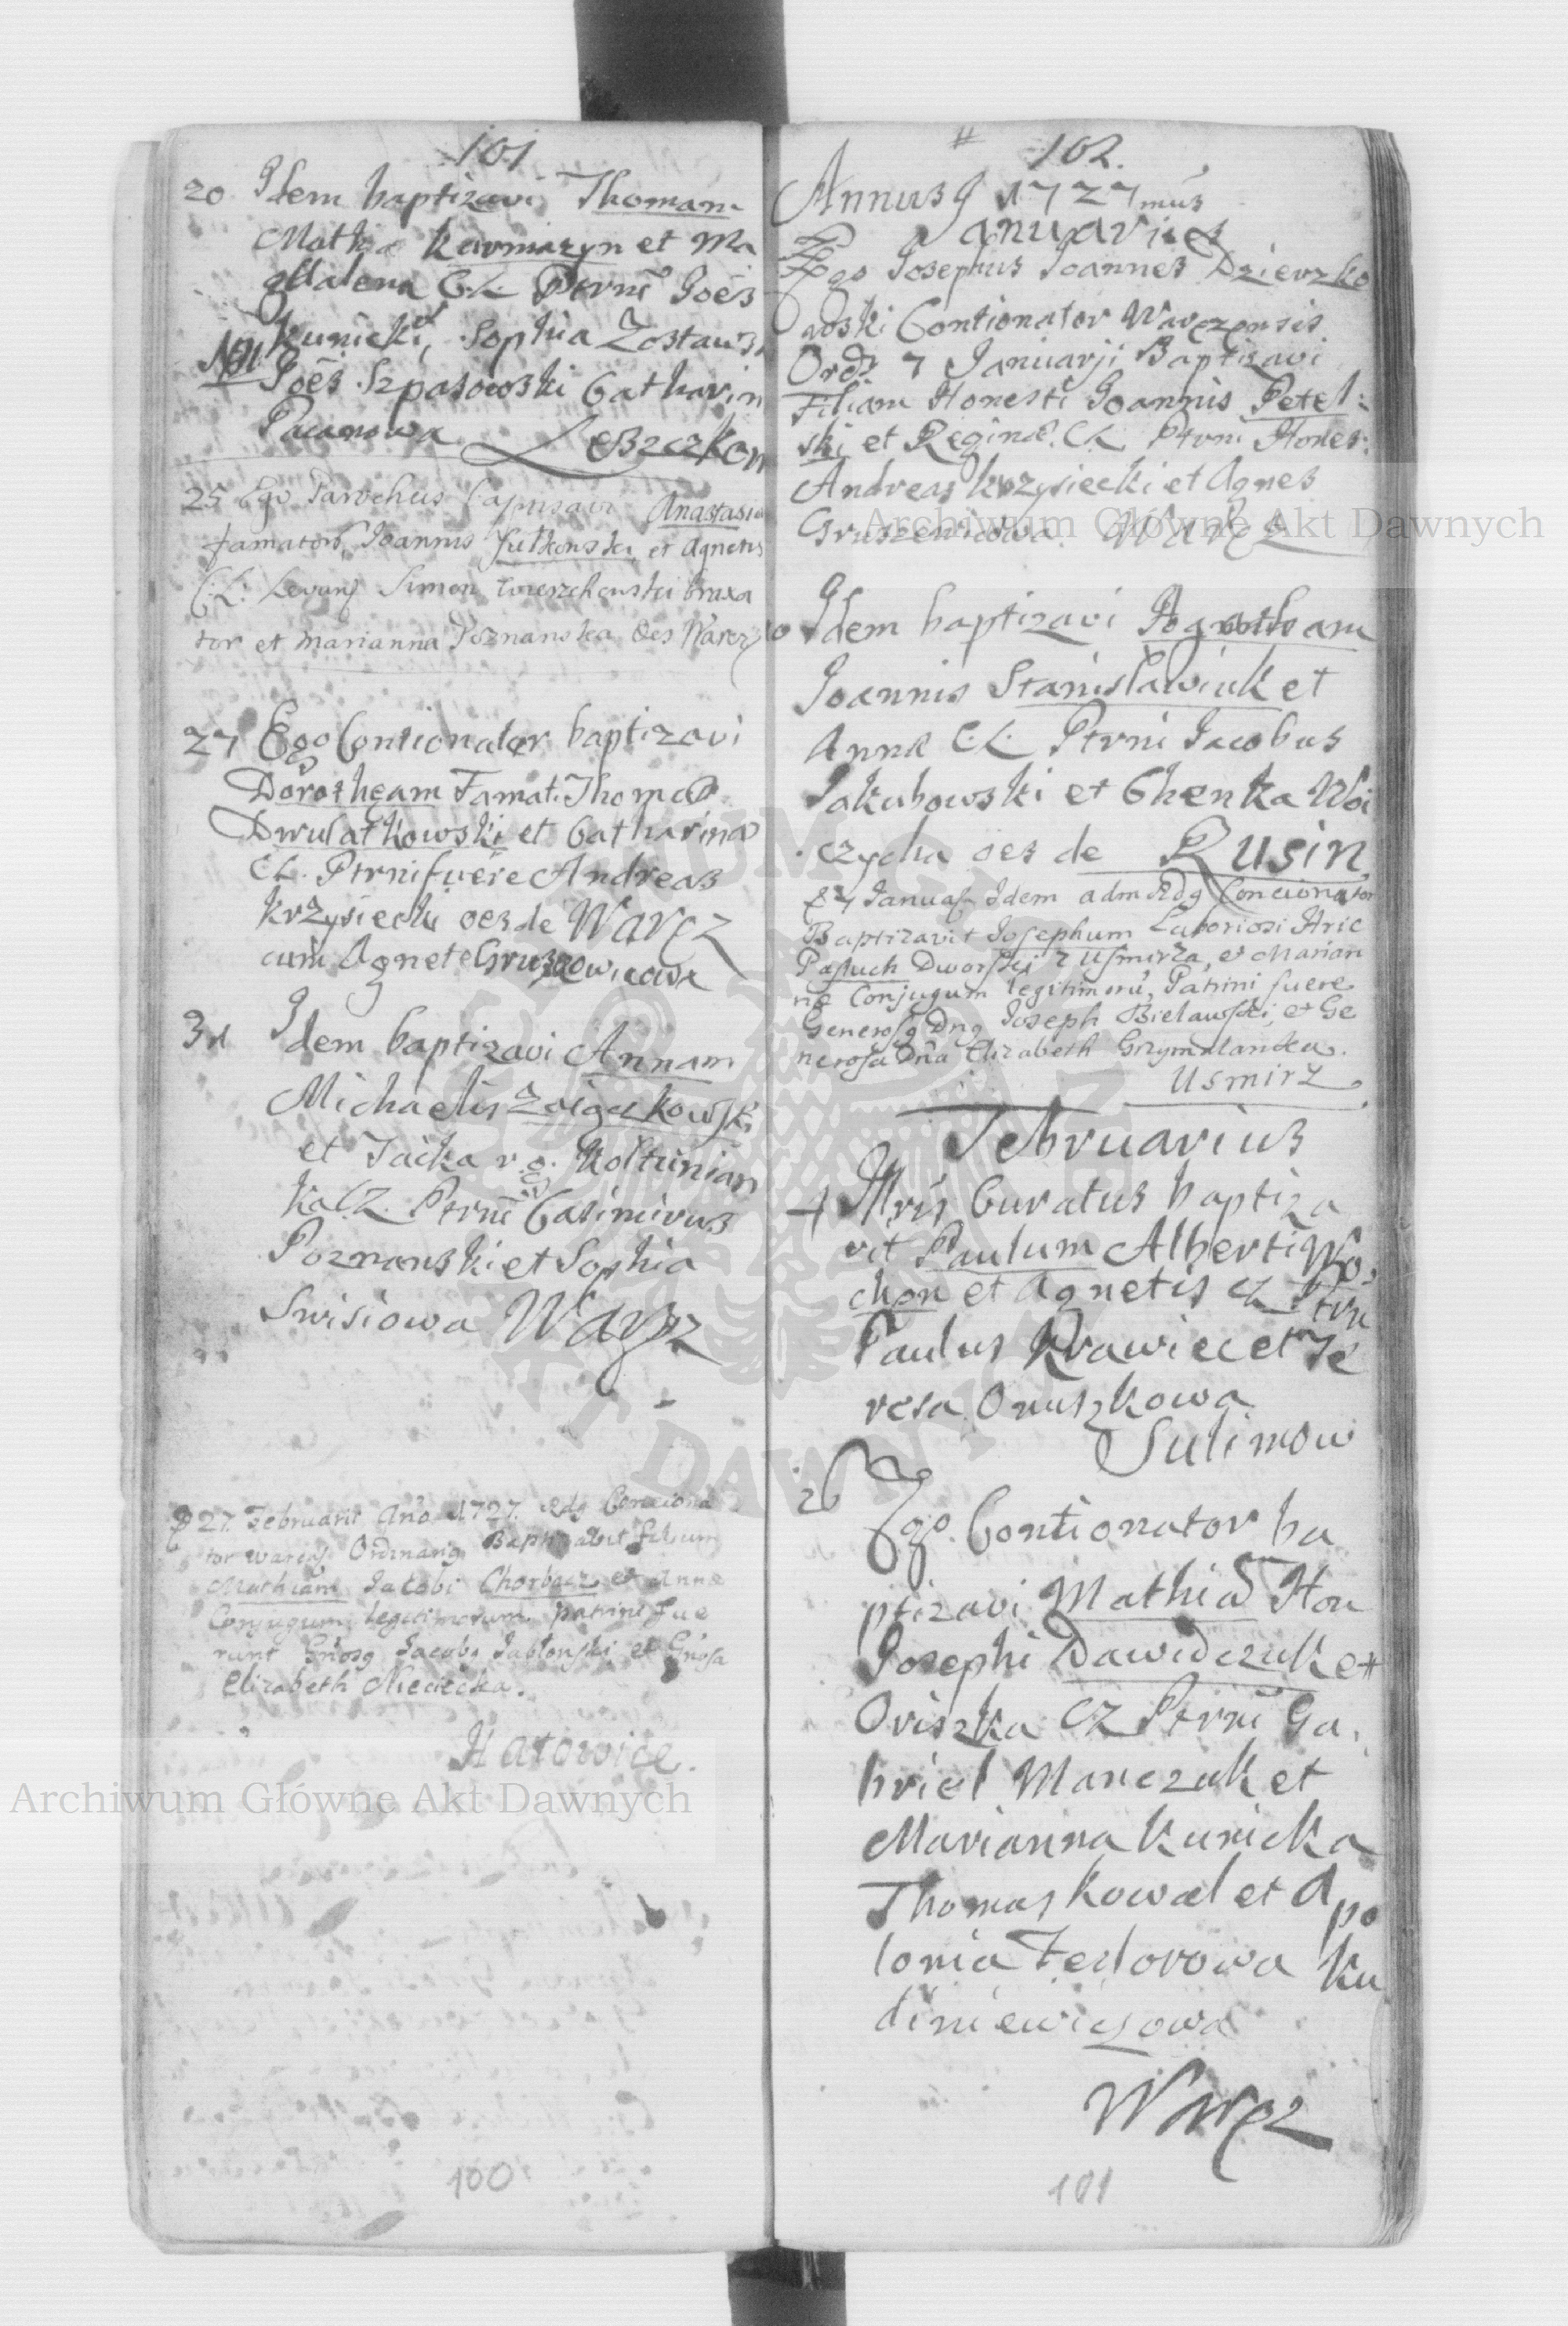 101
20 Idem baptizavi Thomam
Mathiæ Karmazyn et Ma
gdalena C.L. Ptrni Joēs
Kunicki, Sophia Zostaws
Joēs Szpasowski Catharin
Pacanowa Leszczkow
25 Ego Parochus baptisavi Anastasia
famator. Joannis Sulkonski et Agnetis
C: L: Levan Simon Twierzchowski braxa
tor et Marianna Poznanska Oes Warez
27 Ego Contionator baptizavi
Dorotheam Famat. Thomæ
Drwulatkowski et Catharinæ
CL. Ptrni fuere Andreas
Krzysiecki oes de Waręz
cum Agnete Gruszowicowa
31 Idem baptizavi Annam
Michaelis
et Jacka v.g. Koltunian
ka CL. Ptrni Casimirus
Poznanski et Sophia
Swisiowa Waręz
27. Februarii Ano 1727. Rdg Conciona
tor Warens Ordinarig Baptizavit filium
Mathiam Jacobi Chorbacz et Annæ
Conjugum legitimorum patrini fue
runt Gnosg Jacobg Jabłonski et Gnosa
Elizabeth Nieciecka.
Hatowice.
100
102.
Annus 1727mus
Januarius
Ego Josephus Joannes Dzierzko
woski Contionator Waręzensis
Ord 7 Januarji Baptizavi
Filiam Honesti Joannis Petel:
ski et Reginæ CL Ptrni Hones:
Andreas Krzysiecki et Agnes
Gruszewicowa. Waręz
10 Idem baptizavi Agatham
Joannis Stanisławiuk et
Annæ CL. Ptrni Jacobus
Jakubowski et Chenka Woi
czycha oes de Rusin
27 Januar Idem adm Rdg Concionator
Baptizavit Josephum Laboriosi Hric
Pastuch Dworski z Usmirza, et Marian
næ Conjugum legitimorū, Patrini fuere
Generosg Dng Joseph Bielawski, et Ge
nerosa Dña Elizabeth Grzymalanka.
Usmirz
Februarius
4 Curatus baptiza
vit Paulum Alberti Wo
chon et Agnetis CL Ptrni
Paulus Krawiec et Te
resa Onuszkowa
Sulimow
26 Ego Contionator ba
ptizavi Mathiā Hon
Josephi Dawidczuk et
Oriszka CL Ptrni Ga
briel Manczuk et
Marianna Kunicka
Thomas Kowal et Apo
lonia Fedorowa Ku
diniewiczowa
Waręz
101
Archiwum Główne Akt Dawnych
Archiwum Główne Akt Dawnych